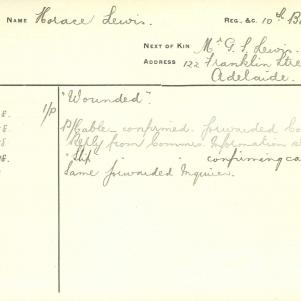 NAME Horace Lewis. REG. &C. 10th B
NEXT OF KIN Mr G. S. Lewis.
ADDRESS 122 Franklin Stre
Adelaide.
1/P "Wounded".
E. P/Cable confirmed. forwarded
Reply from Commrs. Information
E. " Slip " " confirming ca
Same forwarded Inquirer.